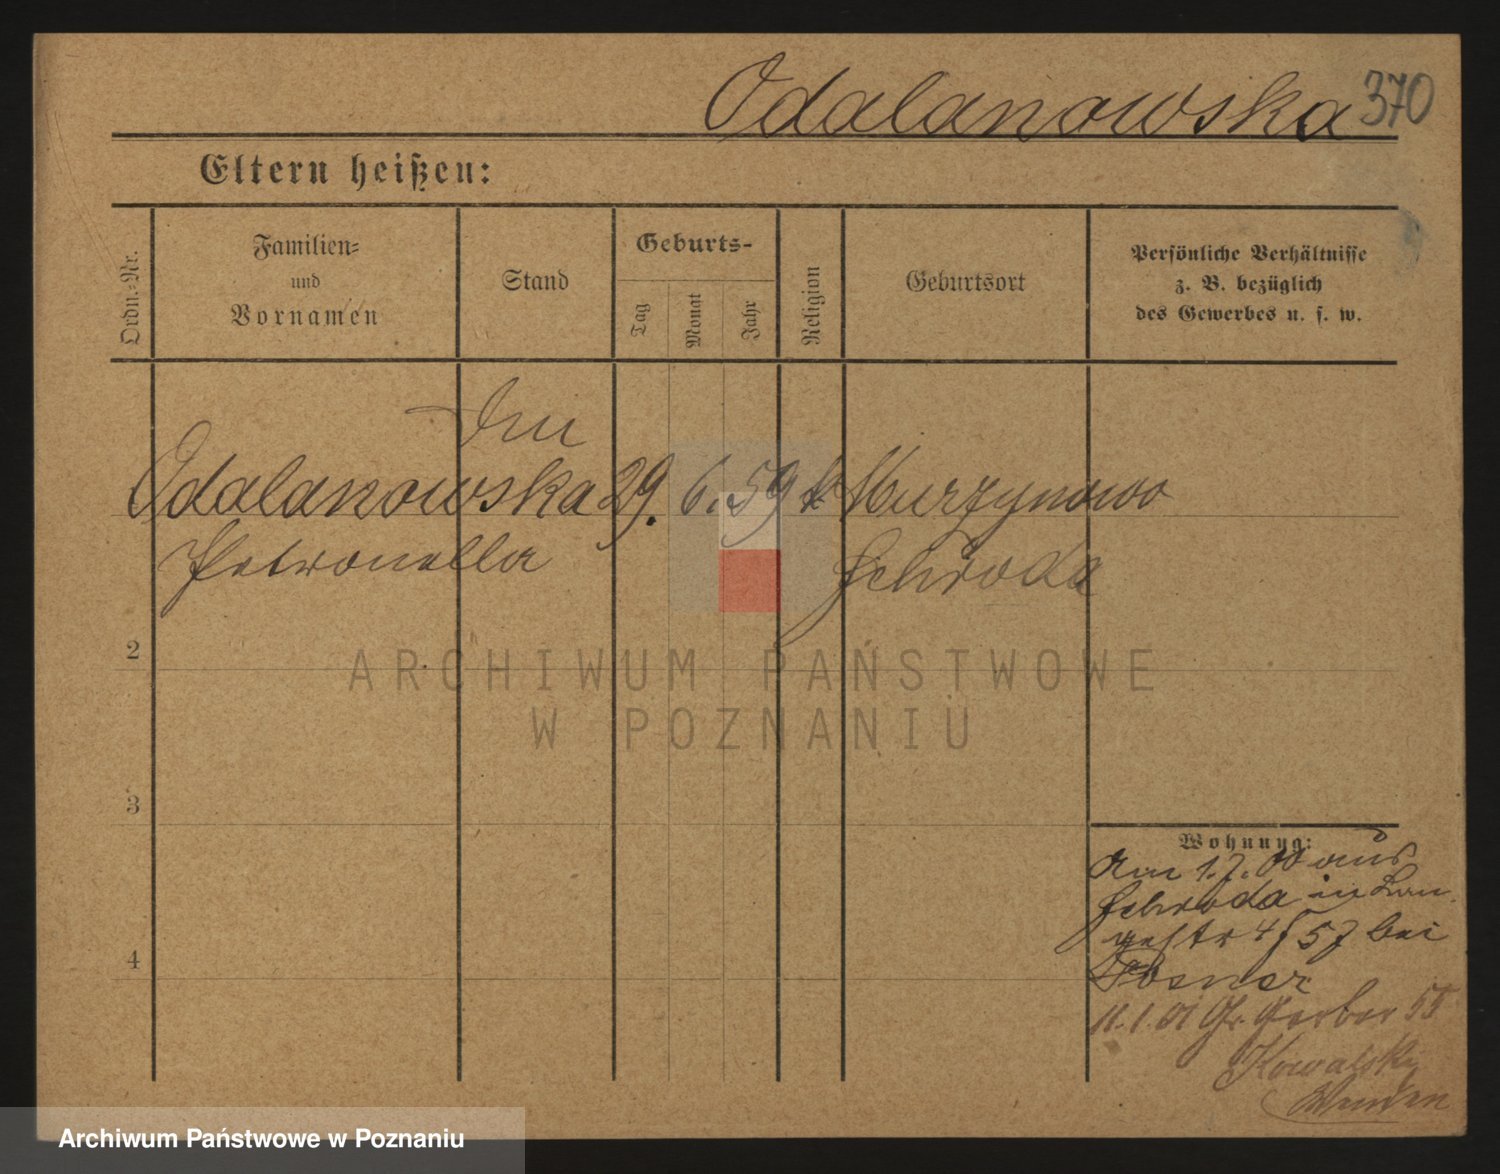 Odalanowska 370
Eltern heißen:
Ordn.-Nr.
Familien-
und
Vornamen
Stand
Geburts-
Tag
Monat
Jahr
Religion
Geburtsort
Persönliche Verhältnisse
z. B. bezüglich
des Gewerbes u. s. w.
Odalanowska 29. 6. 59 k Murzynowo
Petronella Schroda
2
3
4
Wohnung:
Am 1.7.00 aus
Schroda in
bei
Posner
11.1.01 Gr. Gerber 55
Kowalski
ARCHIWUM PAŃSTWOWE
W POZNANIU
Archiwum Państwowe w Poznaniu